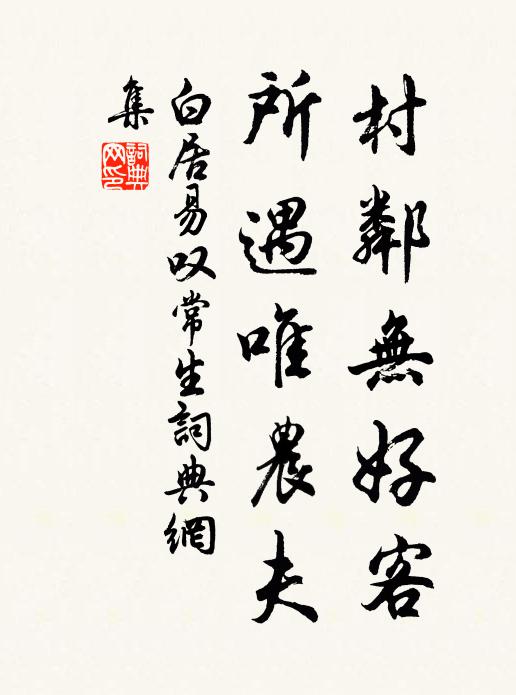 村鄰無好客
所遇唯農夫
白居易叹常生詞典網
集
詞典
网印